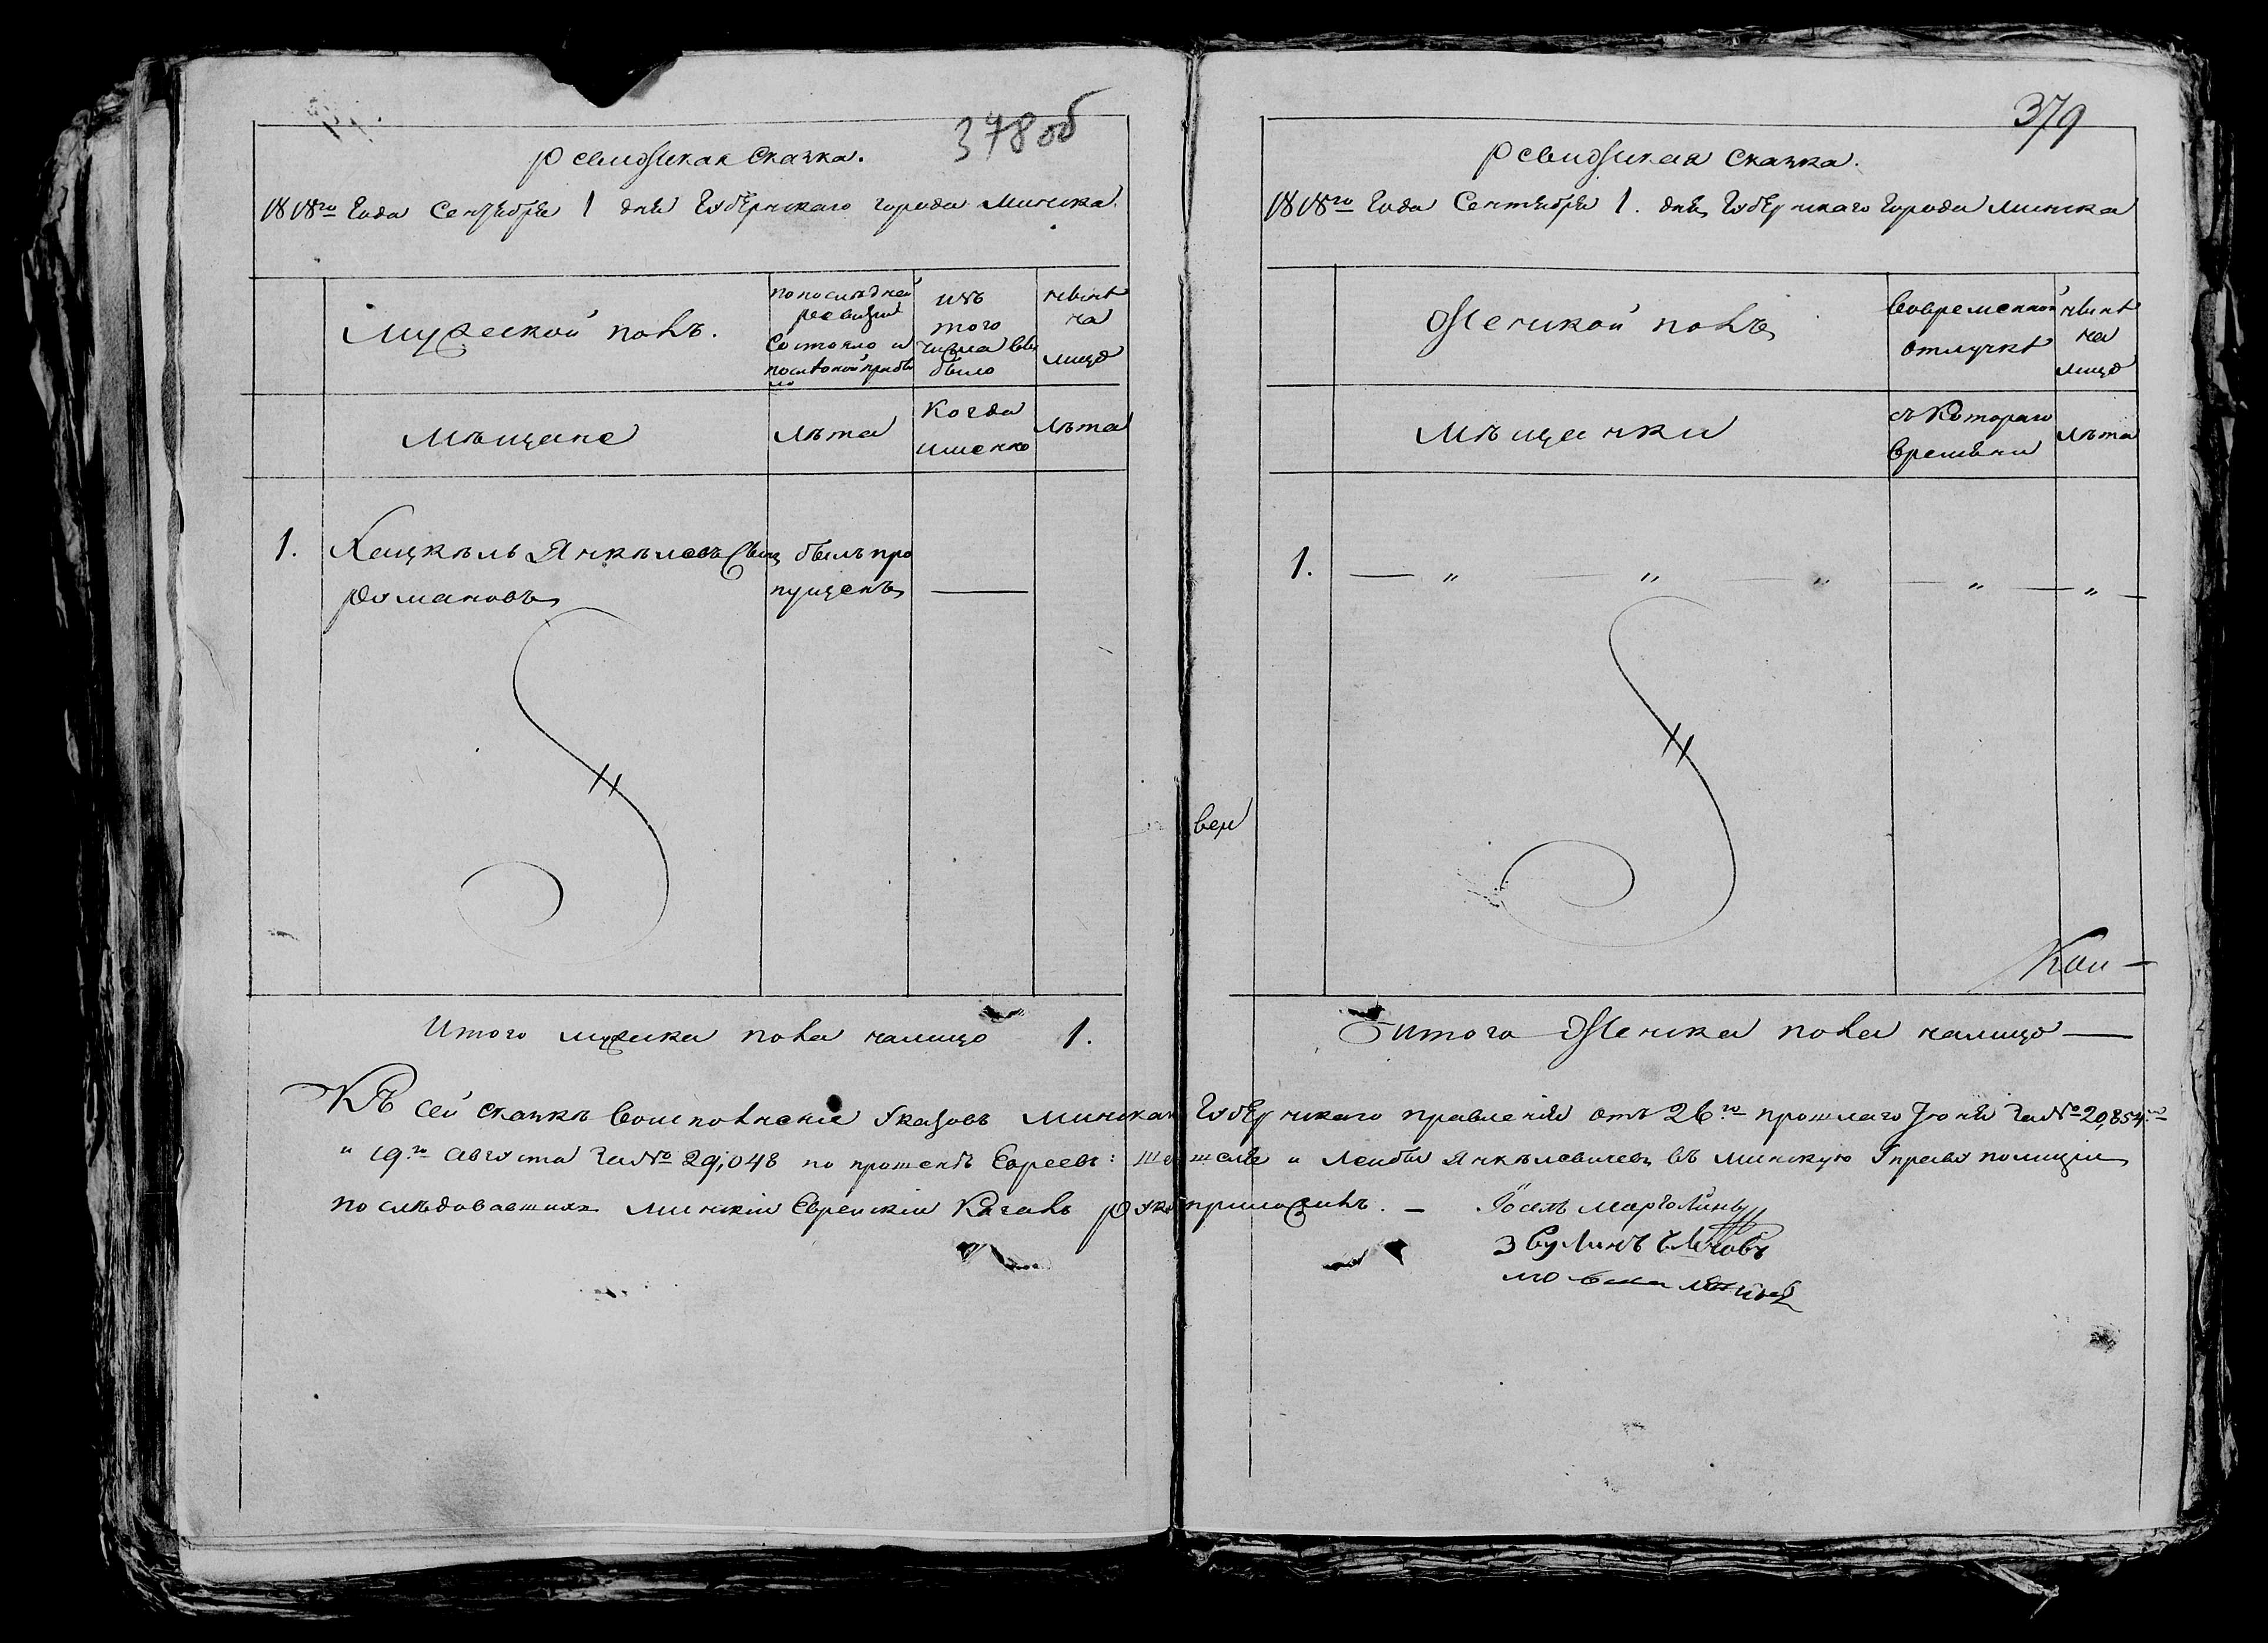 378 об
Ревижская Сказка.
1818го Года Сентября 1 дня Губернскаго города Минска.
Мужеской полъ.
по последней ревизии состояло и после оной прибыло
изъ того числа выбыло
ныне на лицо
Мѣщане
Лѣта
Когда именно
Лѣта
1. Хацкѣль Янкѣлевъ Сынъ былъ про
Романовъ пущенъ —
Итого мужеска пола налицо 1.
379
Ревижская Сказка.
1818го Года Сентября 1. дня Губернскаго Города Минска
Женской полъ
Во временной отлучкѣ
ныне на лицо
Мѣщанки
съ Котораго времѣни
Лѣта
1. — " — " — " — " — " —
Итого Женска пола налицо —
Къ сей сказкѣ во исполнение Указовъ Минскаго Губернскаго правления отъ 26го прошлаго Июня за № 20,854м
и 19го Августа за № 29,048 по прошению Евреевъ: и Лейбы Янкѣлевичевъ въ Минскую Управу полиции
последовавшихъ Минский Еврейский Кагалъ руку приложилъ. —
Иосель Марголинъ
Звулинъ